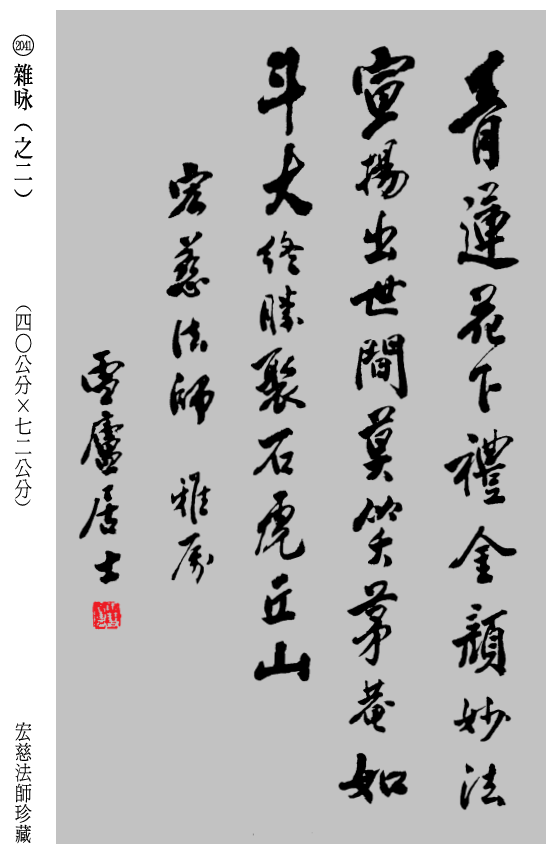 青蓮花下禮金顏妙法
宣揚出世間莫笑茅菴如
斗大終勝聚石虎丘山
宏慈法師 雅屬
雪廬居士
2041 雜咏（之二） （四〇公分×七二公分） 宏慈法師珍藏